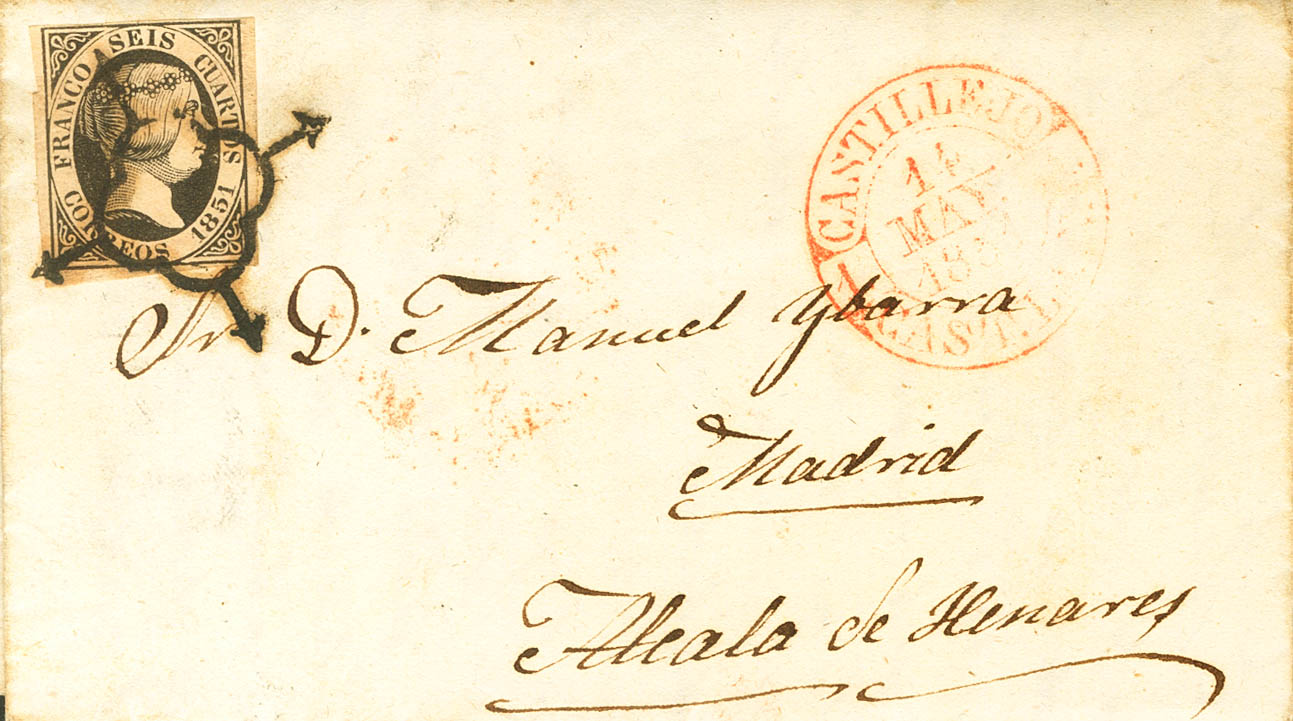 FRANCO A SEIS CUARTOS
CORREOS 1851
CASTILLEJO
14
MAY.
CAST.L
Sr. D. Manuel Ybarra
Madrid
Alcala de Henares